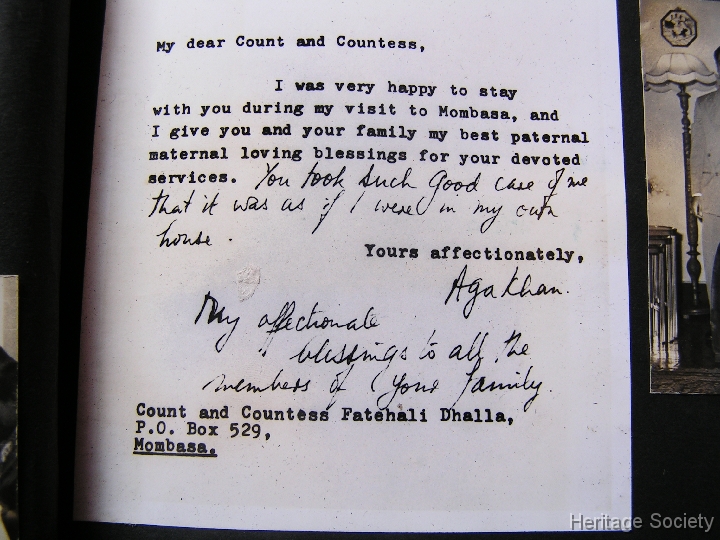 My dear Count and Countess,
I was very happy to stay
with you during my visit to Mombasa, and
I give you and your family my best paternal
maternal loving blessings for your devoted
services. You took such good care of me
that it was as if I were in my own
house.
Yours affectionately,
Aga Khan.
My affectionate
blessings to all the
members of your family.
Count and Countess Fatehali Dhalla,
P.O. Box 529,
Mombasa.
Heritage Society